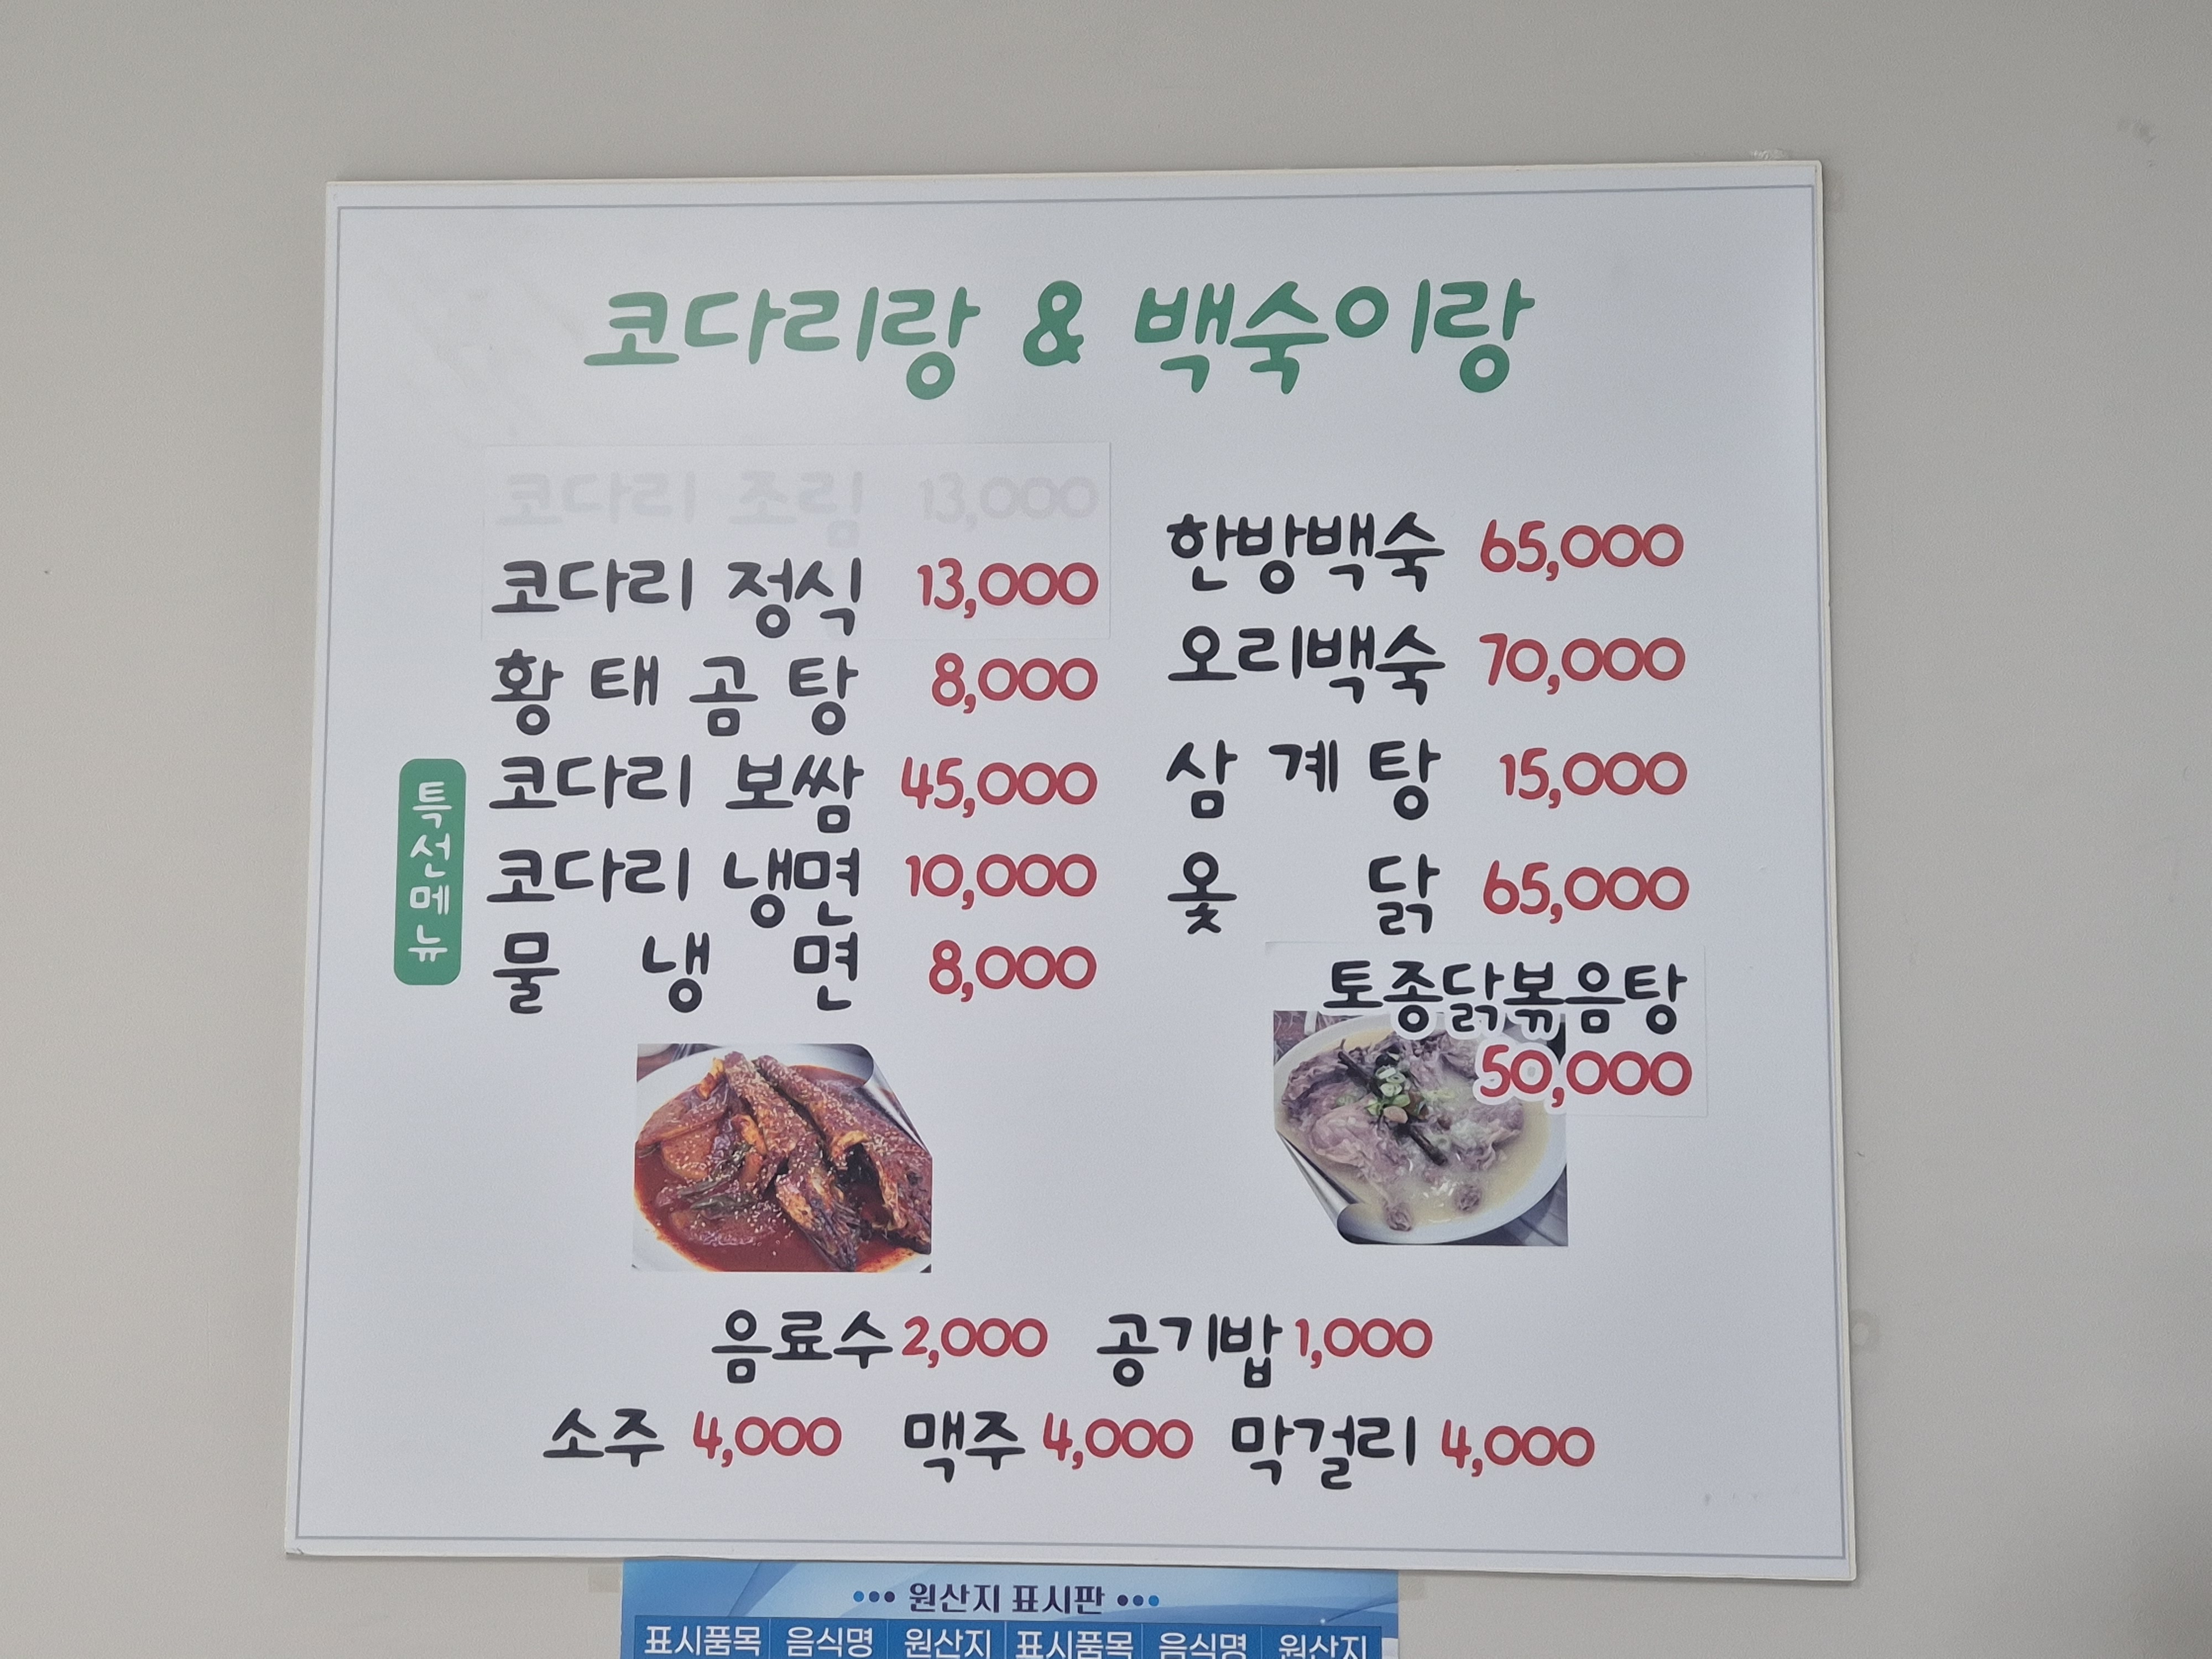 코다리랑 & 백숙이랑
코다리 조림 13,000
코다리 정식 13,000
황태곰탕 8,000
특선메뉴
코다리 보쌈 45,000
코다리 냉면 10,000
물냉면 8,000
한방백숙 65,000
오리백숙 70,000
삼계탕 15,000
옻닭 65,000
토종닭볶음탕
50,000
음료수 2,000 공기밥 1,000
소주 4,000 맥주 4,000 막걸리 4,000
••• 원산지 표시판 •••
표시품목 음식명 원산지 표시품목 음식명 원산지